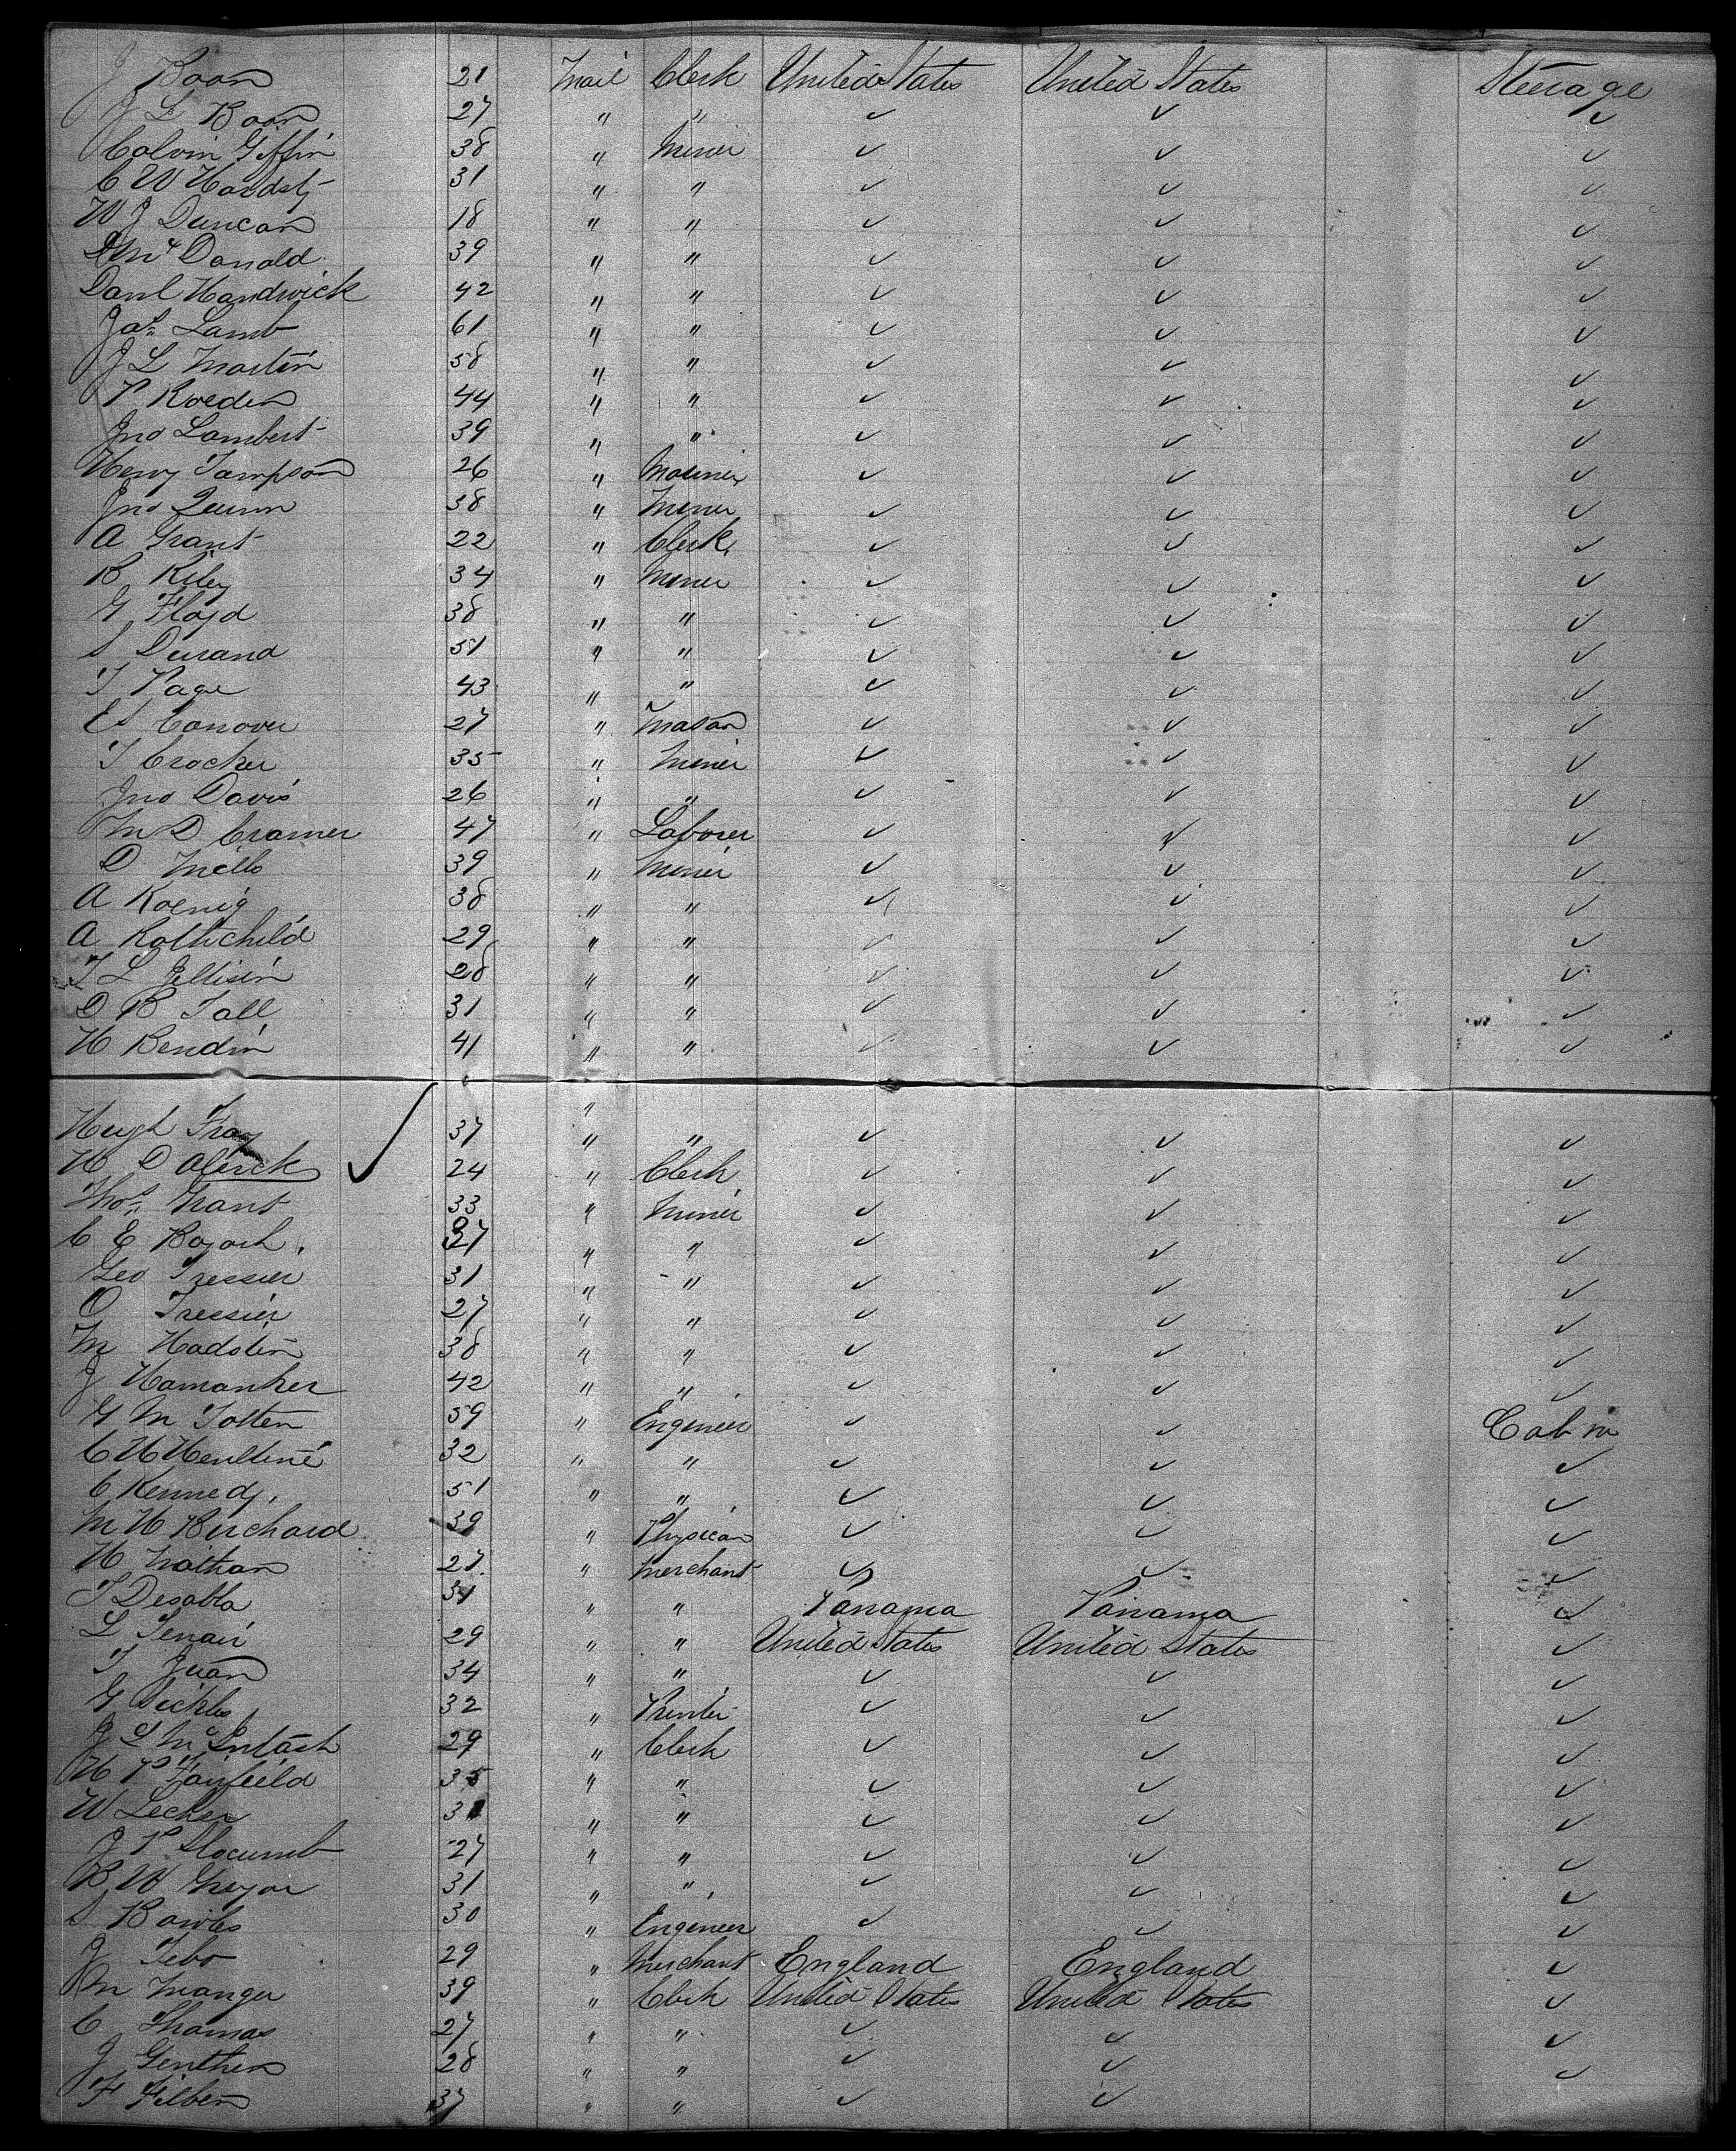 J Boon 21 Male Clerk United States United States Steerage
J L Boon 27 " " ✓ ✓ ✓
Calvin Giffin 38 " Miner ✓ ✓ ✓
C W Hardsty 31 " " ✓ ✓ ✓
W J Duncan 18 " " ✓ ✓ ✓
D McDonald 39 " " ✓ ✓ ✓
Danl Hardwick 42 " " ✓ ✓ ✓
Jas Lamb 61 " " ✓ ✓ ✓
J L Martin 58 " " ✓ ✓ ✓
P Roeder 44 " " ✓ ✓ ✓
Jno Lambert 39 " " ✓ ✓ ✓
Henry Sampson 26 " Mariner ✓ ✓ ✓
Jno Quinn 38 " Miner ✓ ✓ ✓
A Grant 22 " Clerk ✓ ✓ ✓
B Riley 34 " Miner ✓ ✓ ✓
G Floyd 38 " " ✓ ✓ ✓
S Durand 51 " " ✓ ✓ ✓
T Page 43 " " ✓ ✓ ✓
E S Conover 27 " Mason ✓ ✓ ✓
T Crocker 35 " Miner ✓ ✓ ✓
Jno Davis 26 " " ✓ ✓ ✓
M D Cramer 47 " Laborer ✓ ✓ ✓
D Mello 39 " Miner ✓ ✓ ✓
A Koenig 38 " " ✓ ✓ ✓
A Rothchild 29 " " ✓ ✓ ✓
T L Jellisin 28 " " ✓ ✓ ✓
D B Tall 31 " " ✓ ✓ ✓
H Bendin 41 " " ✓ ✓ ✓
"
Hugh Fray 37 " " ✓ ✓ ✓
H D Alerick ✓ 24 " Clerk ✓ ✓ ✓
Thos Grant 33 " Miner ✓ ✓ ✓
C E Boyach 37 " " ✓ ✓ ✓
Geo Tressier 31 " " ✓ ✓ ✓
O Tressier 27 " " ✓ ✓ ✓
M Hadstin 38 " " ✓ ✓ ✓
J Hamanker 42 " " ✓ ✓ ✓
G M Totten 59 " Engineer ✓ ✓ Cabin
C H 32 " " ✓ ✓ ✓
C Kennedy 51 " " ✓ ✓ ✓
M H Burchard 39 " Physician ✓ ✓ ✓
H Nathan 27 " Merchant ✓ ✓ ✓
T Desabla 31 " " Panama Panama ✓
L Tenair 29 " " United States United States ✓
T Juan 34 " " ✓ ✓ ✓
G Sickles 32 " Printer ✓ ✓ ✓
J L McIntosh 29 " Clerk ✓ ✓ ✓
H P Fairfield 35 " " ✓ ✓ ✓
W Lecker 31 " " ✓ ✓ ✓
J P Slocumb 27 " " ✓ ✓ ✓
B W Gregor 31 " " ✓ ✓ ✓
S Bowles 30 " Engineer ✓ ✓ ✓
J Tebo 29 " Merchant England England ✓
M Manger 39 " Clerk United States United States ✓
C Thomas 27 " " ✓ ✓ ✓
J Genther 28 " " ✓ ✓ ✓
F Filben 37 " " ✓ ✓